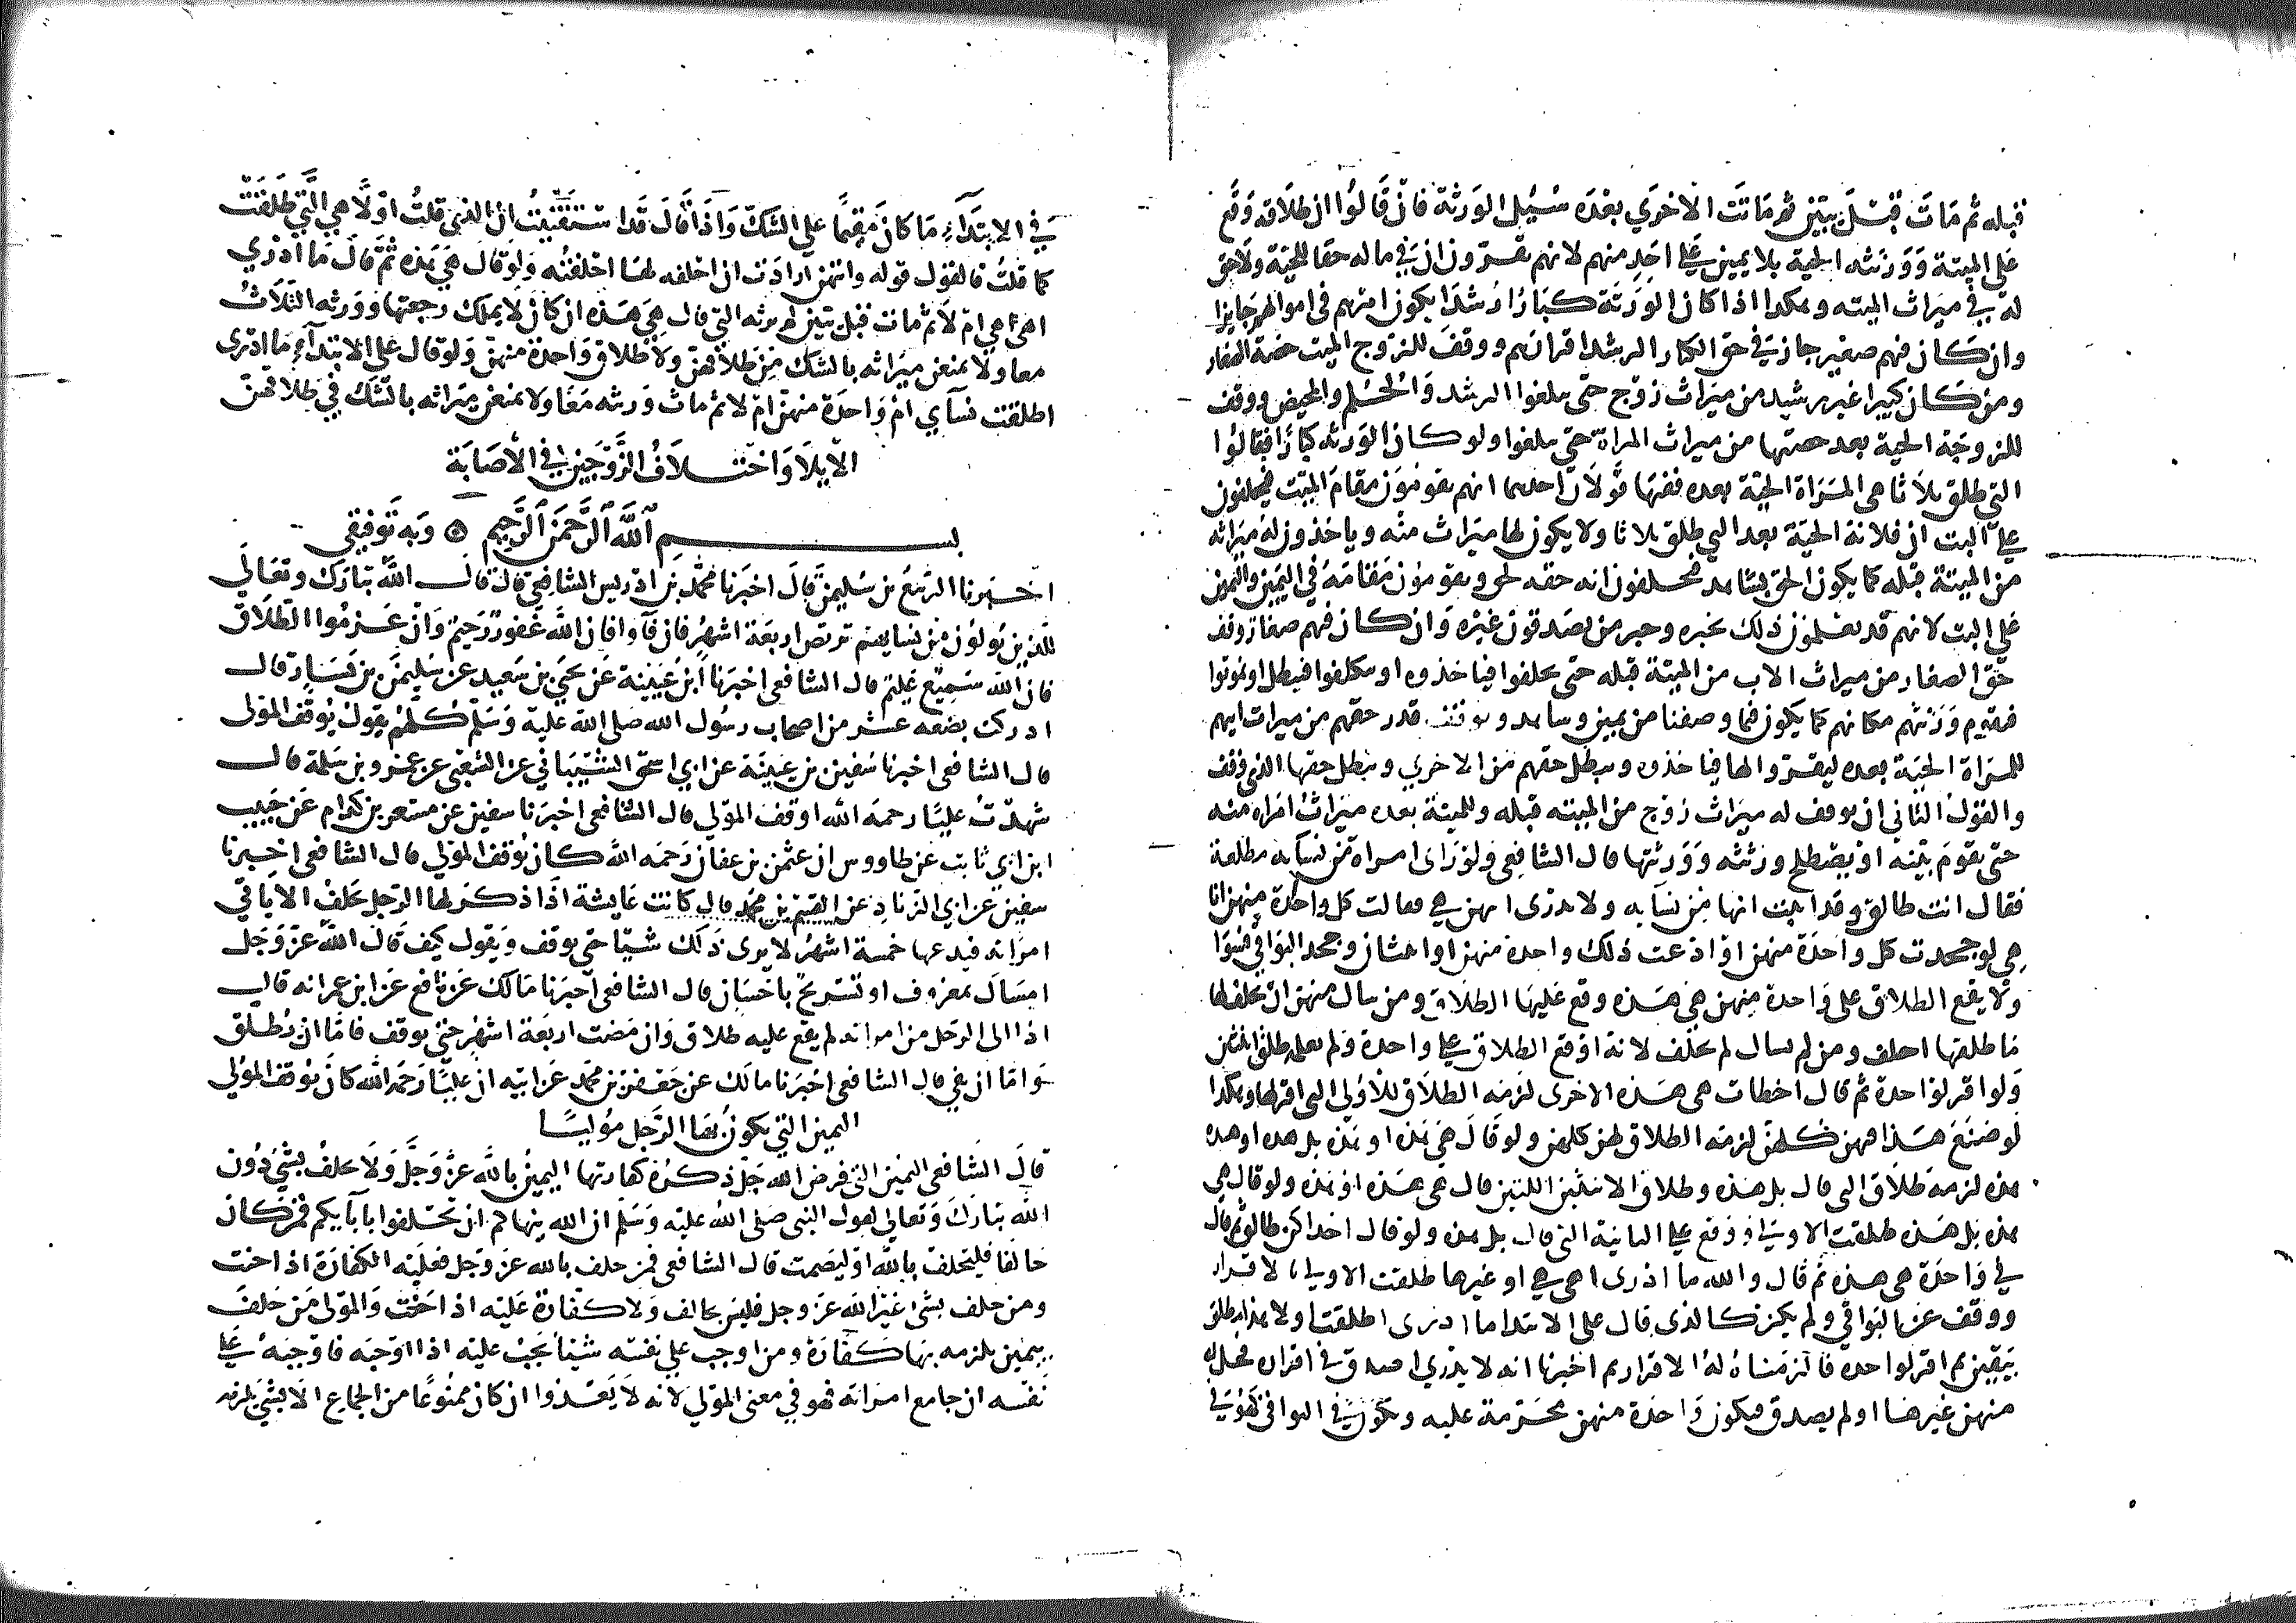 قبله ثم مات قبل بتين ثم ماتت الاخرى بعده سُئل الورثة فان قالوا ان طلاقه وقع
على الميتة وورثته الحية بلا يمين على احد منهم لانهم يقرون ان في ماله حقا للحية ولا حق
له في ميراث الميته وهكذا اذا كان الورثة كبارا رشدا يكون امرهم في اموالهم جايزا
وان كان فيهم صغير جاز في حق الكبار الرشد اقرارهم ووقف للزوج الميت حصة الصغار
ومن كان كبيرا غير رشيد من ميراث زوج حتى يبلغوا الرشد والحلم والمحيض ووقف
للزوجة الحية بعد حصتها من ميراث المراة حتى يبلغوا ولو كان الورثه كبارا فقالوا
التي طلق ثلاثا هي المراة الحية بعده ففيها قولان احدهما انهم يقومون مقام الميت فيحلفون
على البت ان فلانة الحية بعد التي طلق ثلاثا ولا يكون لها ميراث منه وياخذون له ميراثه
من الميتة قبله كما يكون الحق بشاهد فيحلفون انه حقه لحق ويقومون مقامه في اليمين واليمين
على البت لانهم قد يعلمون ذلك بخبره وخبر من يصدقون غيره وان كان فيهم صغار وقف
حق الصغار من ميراث الاب من الميتة قبله حتى يحلفوا فياخذوه او ينكلوا فيبطل او يموتوا
فيقوم ورثتهم مكانهم كما يكون فيما وصفنا من يمين وشاهد ويوقف قدر حقهم من ميراث ابيهم
للمراة الحية بعده ليقروا لها فياخذه ويبطل حقهم من الاخرى ويبطل حقها الذي وقف
والقول الثاني ان يوقف له ميراث زوج من الميته قبله وللميتة بعده ميراث امراه منه
حتى يقوم بينه او يصطلح ورثته وورثتها قال الشافعي ولو راى امراة من نسايه مطلعة
فقال انت طالق وقد اثبت انها من نسايه ولا يدرى ايتهن هي فقالت كل واحدة منهن انا
هي لو جحدت كل واحدة منهن او ادعت ذلك واحدة منهن او اثنتان وجحد البواقي فسوا
ولا يقع الطلاق على واحدة منهن هي هذه وقع عليها الطلاق ومن سال منهن ان يحلف لها
ما طلقها احلف ومن لم يسال لم يحلف لانه اوقع الطلاق على واحدة ولم يعلمه طلق اثنتين
ولو اقر لواحدة ثم قال اخطات هي هذه الاخرى لزمه الطلاق للاولى التي اقر لها وهكذا
لو صنع هذا فيهن كلهن لزمه الطلاق لهن كلهن ولو قال هي هذه او هذه بل هذه او هذه
هذه لزمه طلاق التي قال بل هذه وطلاق الاثنتين اللتين قال هي هذه او هذه ولو قال هي
هذه بل هذه طلقت الاولى ووقع على الثانية التي قال بل هذه ولو قال احداكن طالق ثم قال
في واحدة هي هذه ثم قال والله ما ادرى اهي هي او غيرها طلقت الاولى لا قرار
ووقف عن البواقي ولم يكن كالذي قال على الابتدا ما ادرى اطلقت او لا هذا مطلق
بيقين ثم اقر لواحدة فالزمناه له الاقرار ثم اخبرنا انه لا يدري اصدق في اقراره فحل له
منهن غيرها او لم يصدق فيكون واحدة منهن محرمة عليه ويكون في البواقي كهو في
في الابتداء ما كان مقيما على الشك واذا قال قد استيقنت ان الذي قلت اولا هي التي طلقت
كما قلت فالقول قوله وايتهن ارادت ان احلفه لها احلفته ولو قال هي هذه ثم قال ما ادري
اهي هي ام لا ثم مات قبل بتين لم ترثه التي قال هي هذه ان كان لا يملك رجعتها وورثه الثلاث
معا ولا يمنعن ميراثه بالشك من طلاقهن ولا طلاق واحدة منهن ولو قال على الابتداء ما ادرى
اطلقت نساي ام واحدة منهن ام لا ثم مات ورثه معا ولا يمنعن ميراثه بالشك في طلاقهن
الايلا واختلاف الزوجين في الاصابة
بسم الله الرحمن الرحيم ۞ وبه توفيقي
اخبرنا الربيع بن سليمن قال اخبرنا محمد بن ادريس الشافعي قال قال الله تبارك وتعالى
للذين يولون من نسايهم تربص اربعة اشهر فان فآوا فان الله غفور رحيم وان عزموا الطلاق
فان الله سميع عليم قال الشافعي اخبرنا ابن عيينة عن يحيى بن سعيد عن سليمن بن يسار قال
ادركت بضعه عشر من اصحاب رسول الله صلى الله عليه وسلم كلهم يقول يوقف المولى
قال الشافعي اخبرنا سفين بن عيينة عن ابي اسحق الشيباني عن الشعبي عن عمرو بن سلمة قال
شهدت عليا رحمه الله اوقف المولي قال الشافعي اخبرنا سفين عن مسعر بن كدام عن حبيب
ابن ابي ثابت عن طاووس ان عثمن بن عفان رحمه الله كان يوقف المولي قال الشافعي اخبرنا
سفين عن ابي الزناد عن القسم بن محمد قال كانت عايشة اذا ذكر لها الرجل يحلف الا ياتي
امراته فيدعها خمسة اشهر لا يرى ذلك شيا حتى يوقف ويقول كيف قال الله عز وجل
امساك بمعروف او تسريح باحسان قال الشافعي اخبرنا مالك عن نافع عن ابن عمر انه قال
اذا الى الرجل من امراته لم يقع عليه طلاق وان مضت اربعة اشهر حتى يوقف فاما ان يطلق
واما ان يفي قال الشافعي اخبرنا مالك عن جعفر بن محمد عن ابيه ان عليا رحمه الله كان يوقف المولي
اليمين التي يكون بها الرجل موليا
قال الشافعي اليمين التي فرض الله جل ذكره كفارتها اليمين بالله عز وجل ولا يحلف بشي دون
الله تبارك وتعالى لقول النبي صلى الله عليه وسلم ان الله ينهاكم ان تحلفوا بابايكم فمن كان
حالفا فليحلف بالله او ليصمت قال الشافعي فمن حلف بالله عز وجل فعليه الكفارة اذا حنث
ومن حلف بشى غير الله عز وجل فليس بحالف ولا كفارة عليه اذا حنث والمولى من حلف
بيمين يلزمه بها كفارة ومن اوجب على نفسه شيئا يجب عليه اذا اوجبه فاوجبه على
نفسه ان جامع امراته فهو في معنى المولي لانه لا يعدوا ان كان ممنوعا من الجماع الا بشي يلزمه